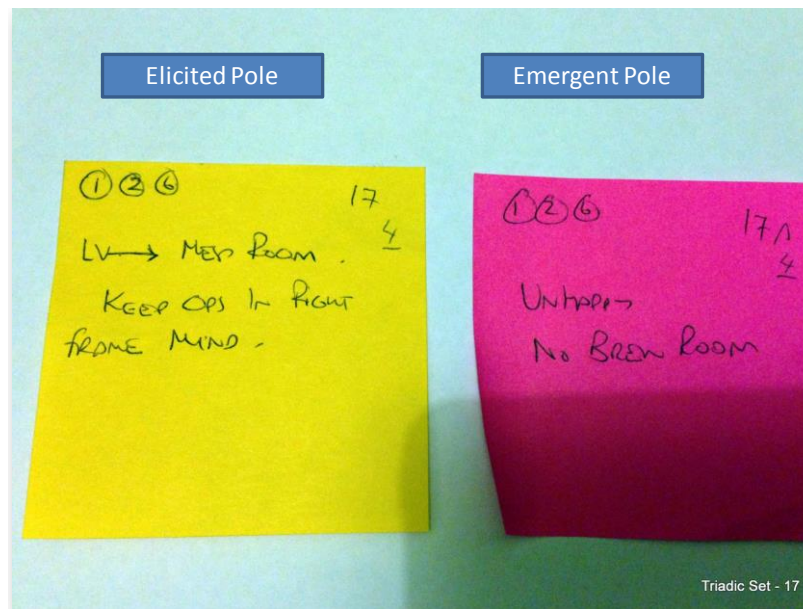 Elicited Pole
Emergent Pole
① ② ⑥
17
4
LV → MESS ROOM.
KEEP OPS IN RIGHT
FRAME MIND.
① ② ⑥
17A
4
UNHAPPY
NO BREW ROOM
Triadic Set - 17